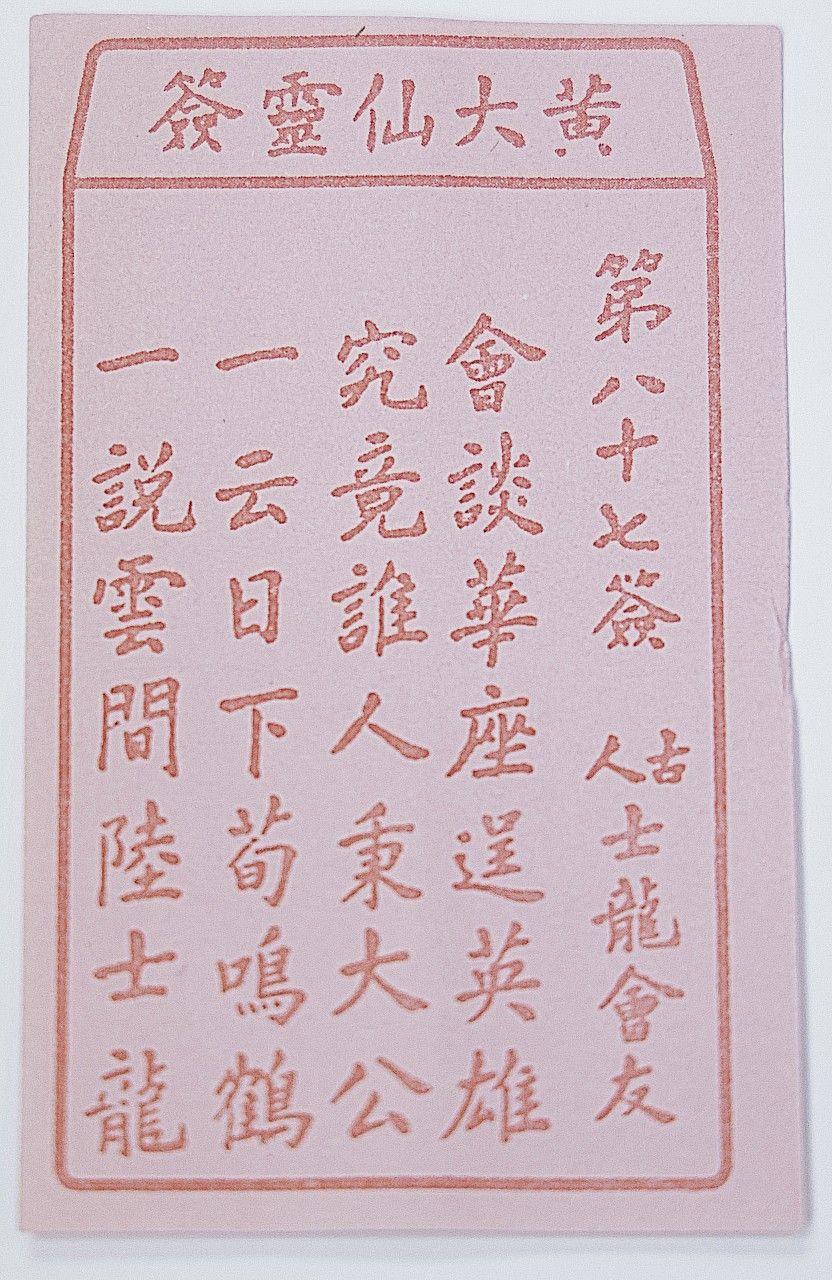 黃大仙靈簽
第八十七簽 古人士龍會友
會談華座逞英雄
究竟誰人秉大公
一云日下荀鳴鶴
一説雲間陸士龍